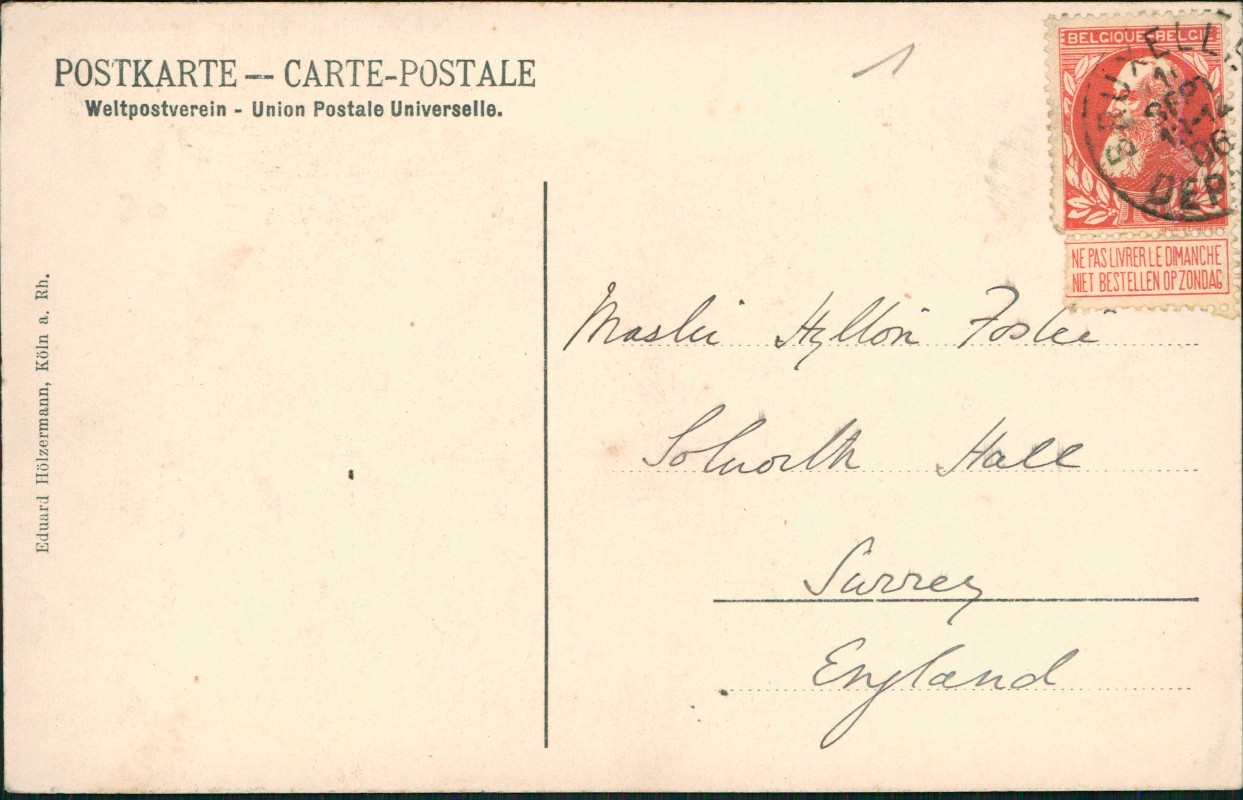 POSTKARTE — CARTE-POSTALE
Weltpostverein - Union Postale Universelle.
BELGIQUE BELGIË
BRUXELLES
SEP
11-12
06
DEP
10
NE PAS LIVRER LE DIMANCHE
NIET BESTELLEN OP ZONDAG
Master Hylton Foster
Solworth Hall
Surrey
England
Eduard Hölzermann, Köln a. Rh.